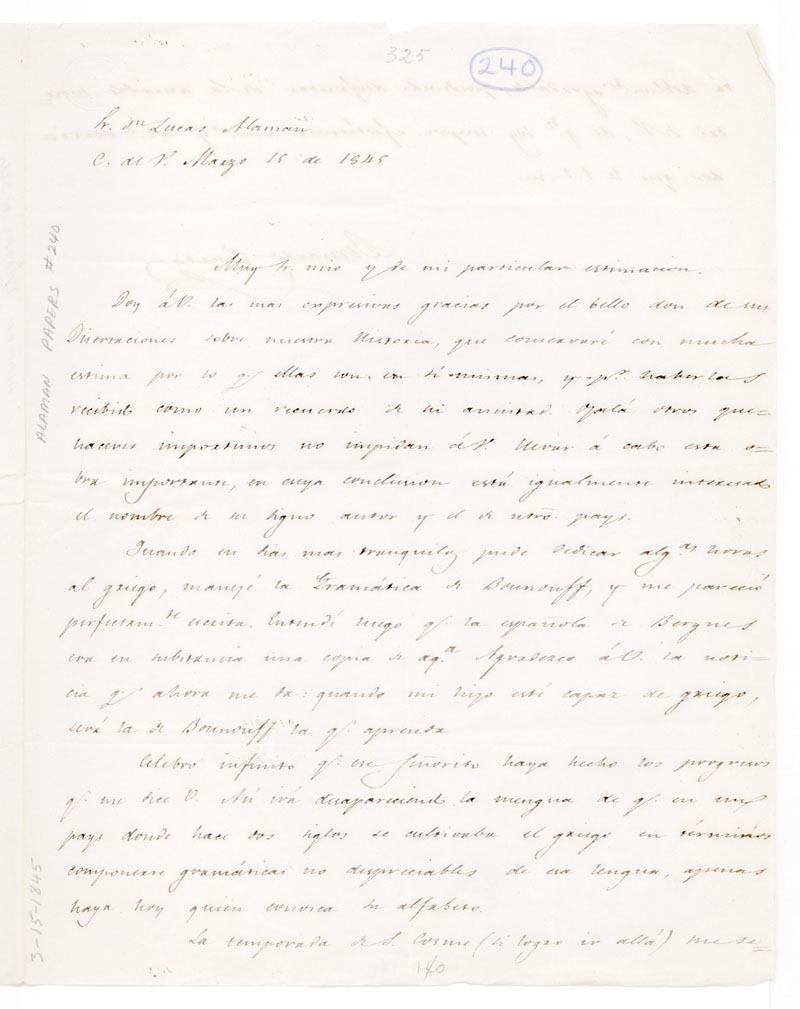 325
240
Sr. Dn Lucas Alaman
C. de V. Marzo 15 de 1845
ALAMAN PAPERS # 240
Muy Sr. mio y de mi particular estimacion.
Doy á V. las mas expresivas gracias por el bello don de sus
Disertaciones sobre nuestra Historia, que conservaré con mucha
estima por lo q.e ellas son en sí mismas, y p.r haberlas
recibido como un recuerdo de su amistad. Ojalá otros que=
haceres importunos no impidan á V. llevar á cabo esta o=
bra importante, en cuya conclusion está igualmente interesado
el nombre de su digno autor y el de ntro pays.
Quando en dias mas tranquilos pude dedicar alg.as horas
al griego, manejé la Gramática de Bournouff, y me pareció
perfectam.te escrita. Entendí luego q.e la española de Bergnes
era en substancia una copia de aq.a Agradezco á V. la noti=
cia q.e ahora me da: quando mi hijo esté capaz de griego,
será la de Bournouff la q.e aprenda
Celebro infinito q.e ese Señorito haya hecho los progresos
q.e me dice V. Así irá desapareciendo la mengua de q.e en un
pays donde hace dos siglos se cultivaba el griego en términos
componerse gramáticas no despreciables de esa lengua, apenas
haya hoy quien conosca su alfabeto.
La temporada de S. Cosme (si logro ir allá) me se=
3-15-1845
140